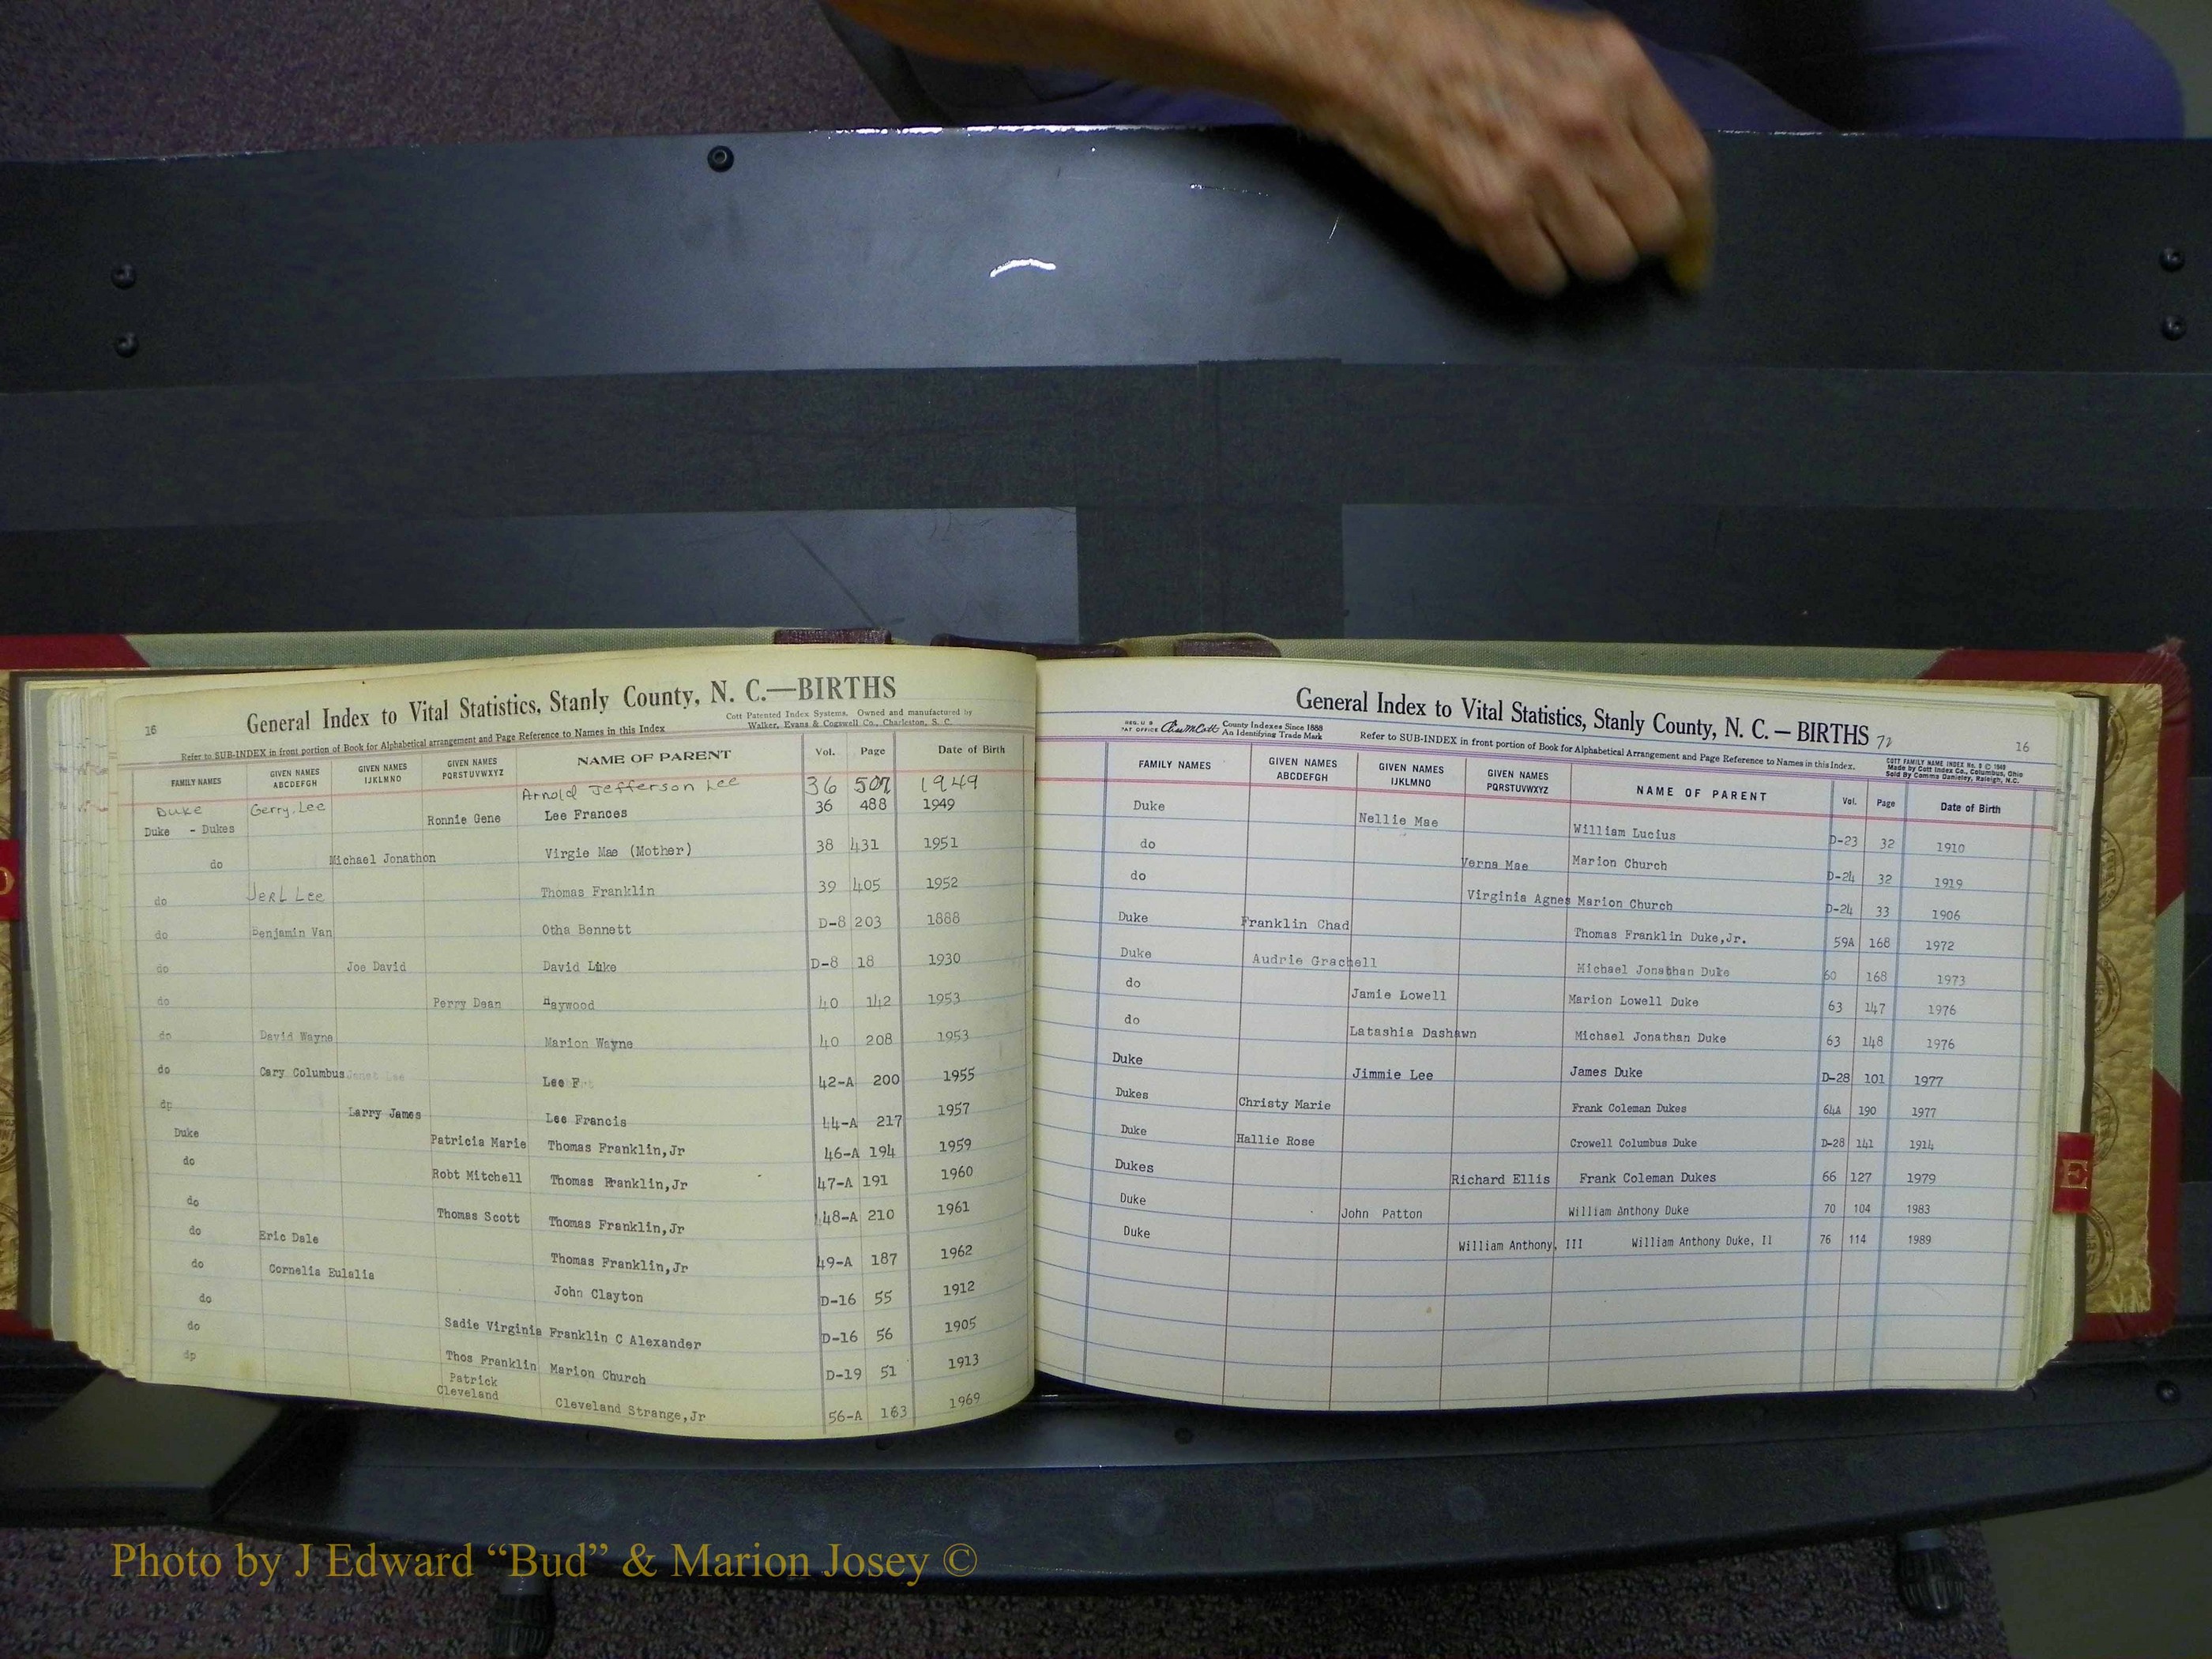 16
General Index to Vital Statistics, Stanly County, N. C.—BIRTHS
Cott Patented Index Systems. Owned and manufactured by
Walker, Evans & Cogswell Co., Charleston, S. C.
Refer to SUB-INDEX in front portion of Book for Alphabetical arrangement and Page Reference to Names in this Index
FAMILY NAMES GIVEN NAMES ABCDEFGH GIVEN NAMES IJKLMNO GIVEN NAMES PQRSTUVWXYZ NAME OF PARENT Vol. Page Date of Birth
Duke Gerry, Lee Arnold Jefferson Lee 36 507 1949
Duke - Dukes Ronnie Gene Lee Frances 36 488 1949
do Michael Jonathon Virgie Mae (Mother) 38 431 1951
do Jerl Lee Thomas Franklin 39 405 1952
do Benjamin Van Otha Bennett D-8 203 1888
do Joe David David Luke D-8 18 1930
do Perry Dean Haywood 40 142 1953
do David Wayne Marion Wayne 40 208 1953
do Cary Columbus Lee F 42-A 200 1955
dp Larry James Lee Francis 44-A 217 1957
Duke Patricia Marie Thomas Franklin,Jr 46-A 194 1959
do Robt Mitchell Thomas Franklin,Jr 47-A 191 1960
do Thomas Scott Thomas Franklin,Jr 48-A 210 1961
do Eric Dale Thomas Franklin,Jr 49-A 187 1962
do Cornelia Eulalia John Clayton D-16 55 1912
do Sadie Virginia Franklin C Alexander D-16 56 1905
do Thos Franklin Marion Church D-19 51 1913
dp Patrick Cleveland Cleveland Strange,Jr 56-A 163 1969
General Index to Vital Statistics, Stanly County, N. C. — BIRTHS 72
16
REG. U S
PAT OFFICE
County Indexes Since 1888
An Identifying Trade Mark
Refer to SUB-INDEX in front portion of Book for Alphabetical Arrangement and Page Reference to Names in this Index.
COTT FAMILY NAME INDEX No. 9 © 1949
Made by Cott Index Co., Columbus, Ohio
Sold By Comms Danieley, Raleigh, N.C.
FAMILY NAMES GIVEN NAMES ABCDEFGH GIVEN NAMES IJKLMNO GIVEN NAMES PQRSTUVWXYZ NAME OF PARENT Vol. Page Date of Birth
Duke Nellie Mae William Lucius D-23 32 1910
do Verna Mae Marion Church D-24 32 1919
do Virginia Agnes Marion Church D-24 33 1906
Duke Franklin Chad Thomas Franklin Duke,Jr. 59A 168 1972
Duke Audrie Grachell Michael Jonathan Duke 60 168 1973
do Jamie Lowell Marion Lowell Duke 63 147 1976
do Latashia Dashawn Michael Jonathan Duke 63 148 1976
Duke Jimmie Lee James Duke D-28 101 1977
Dukes Christy Marie Frank Coleman Dukes 64A 190 1977
Duke Hallie Rose Crowell Columbus Duke D-28 141 1914
Dukes Richard Ellis Frank Coleman Dukes 66 127 1979
Duke John Patton William Anthony Duke 70 104 1983
Duke William Anthony, III William Anthony Duke, II 76 114 1989
E
Photo by J Edward “Bud” & Marion Josey ©